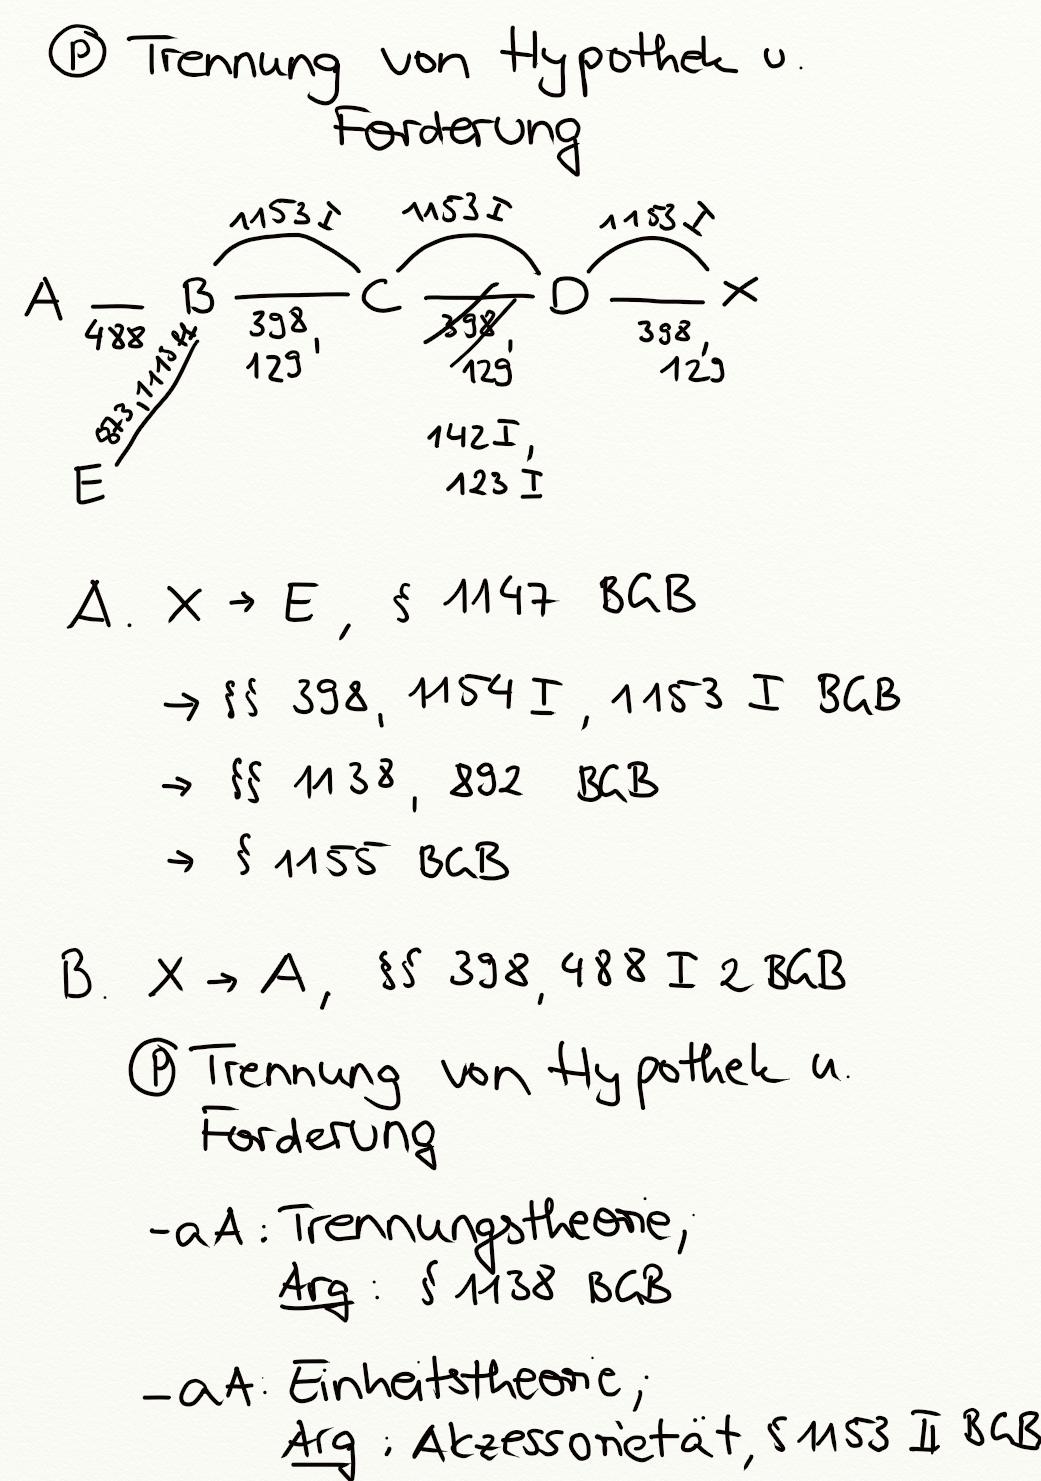 Ⓟ Trennung von Hypothek u.
Forderung
1153 I 1153 I 1153 I
A B C D X
488 398, 398, 398,
129 129 129
873, 1113 ff
142 I,
123 I
E
A. X → E, § 1147 BGB
→ §§ 398, 1154 I, 1153 I BGB
→ §§ 1138, 892 BGB
→ § 1155 BGB
B. X → A, §§ 398, 488 I 2 BGB
Ⓟ Trennung von Hypothek u.
Forderung
- aA: Trennungstheorie,
Arg: § 1138 BGB
- aA: Einheitstheorie,
Arg: Akzessorietät, § 1153 II BGB